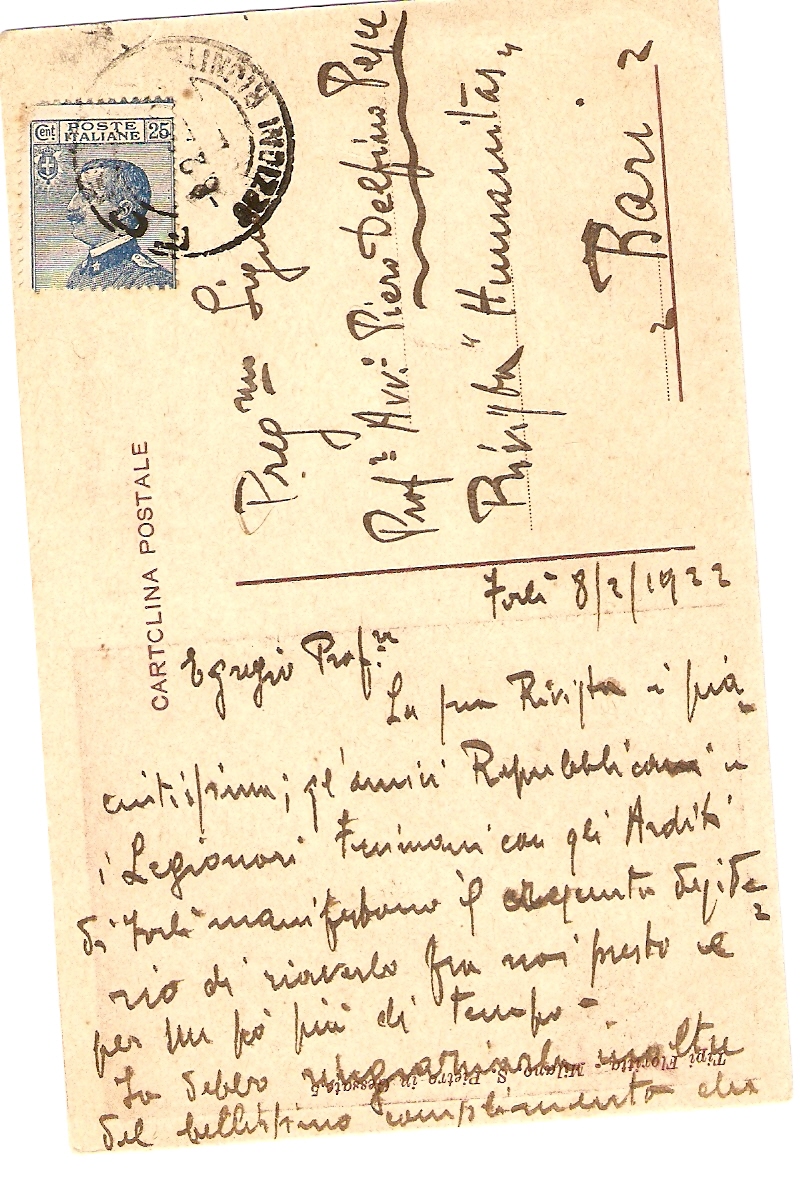 Cent. POSTE ITALIANE 25
CARTCLINA POSTALE
Preg.mo Sign
Prof.re Avv. Piero Delfino Pesce
Rivista "Humanitas"
Bari
Forlì 8/2/1922
Egregio Prof.re
La sua Rivista è pia-
ciutissima; gl'amici Repubblicani e
i Legionari Fiumani con gli Arditi
di Forlì manifestano il deside-
rio di riaverlo fra noi presto e
per un pò più di tempo -
La debbo ringraziarla inoltre
del bellissimo complimento che
Tipi Floritta - Milano, S. Pietro in Gessate 5